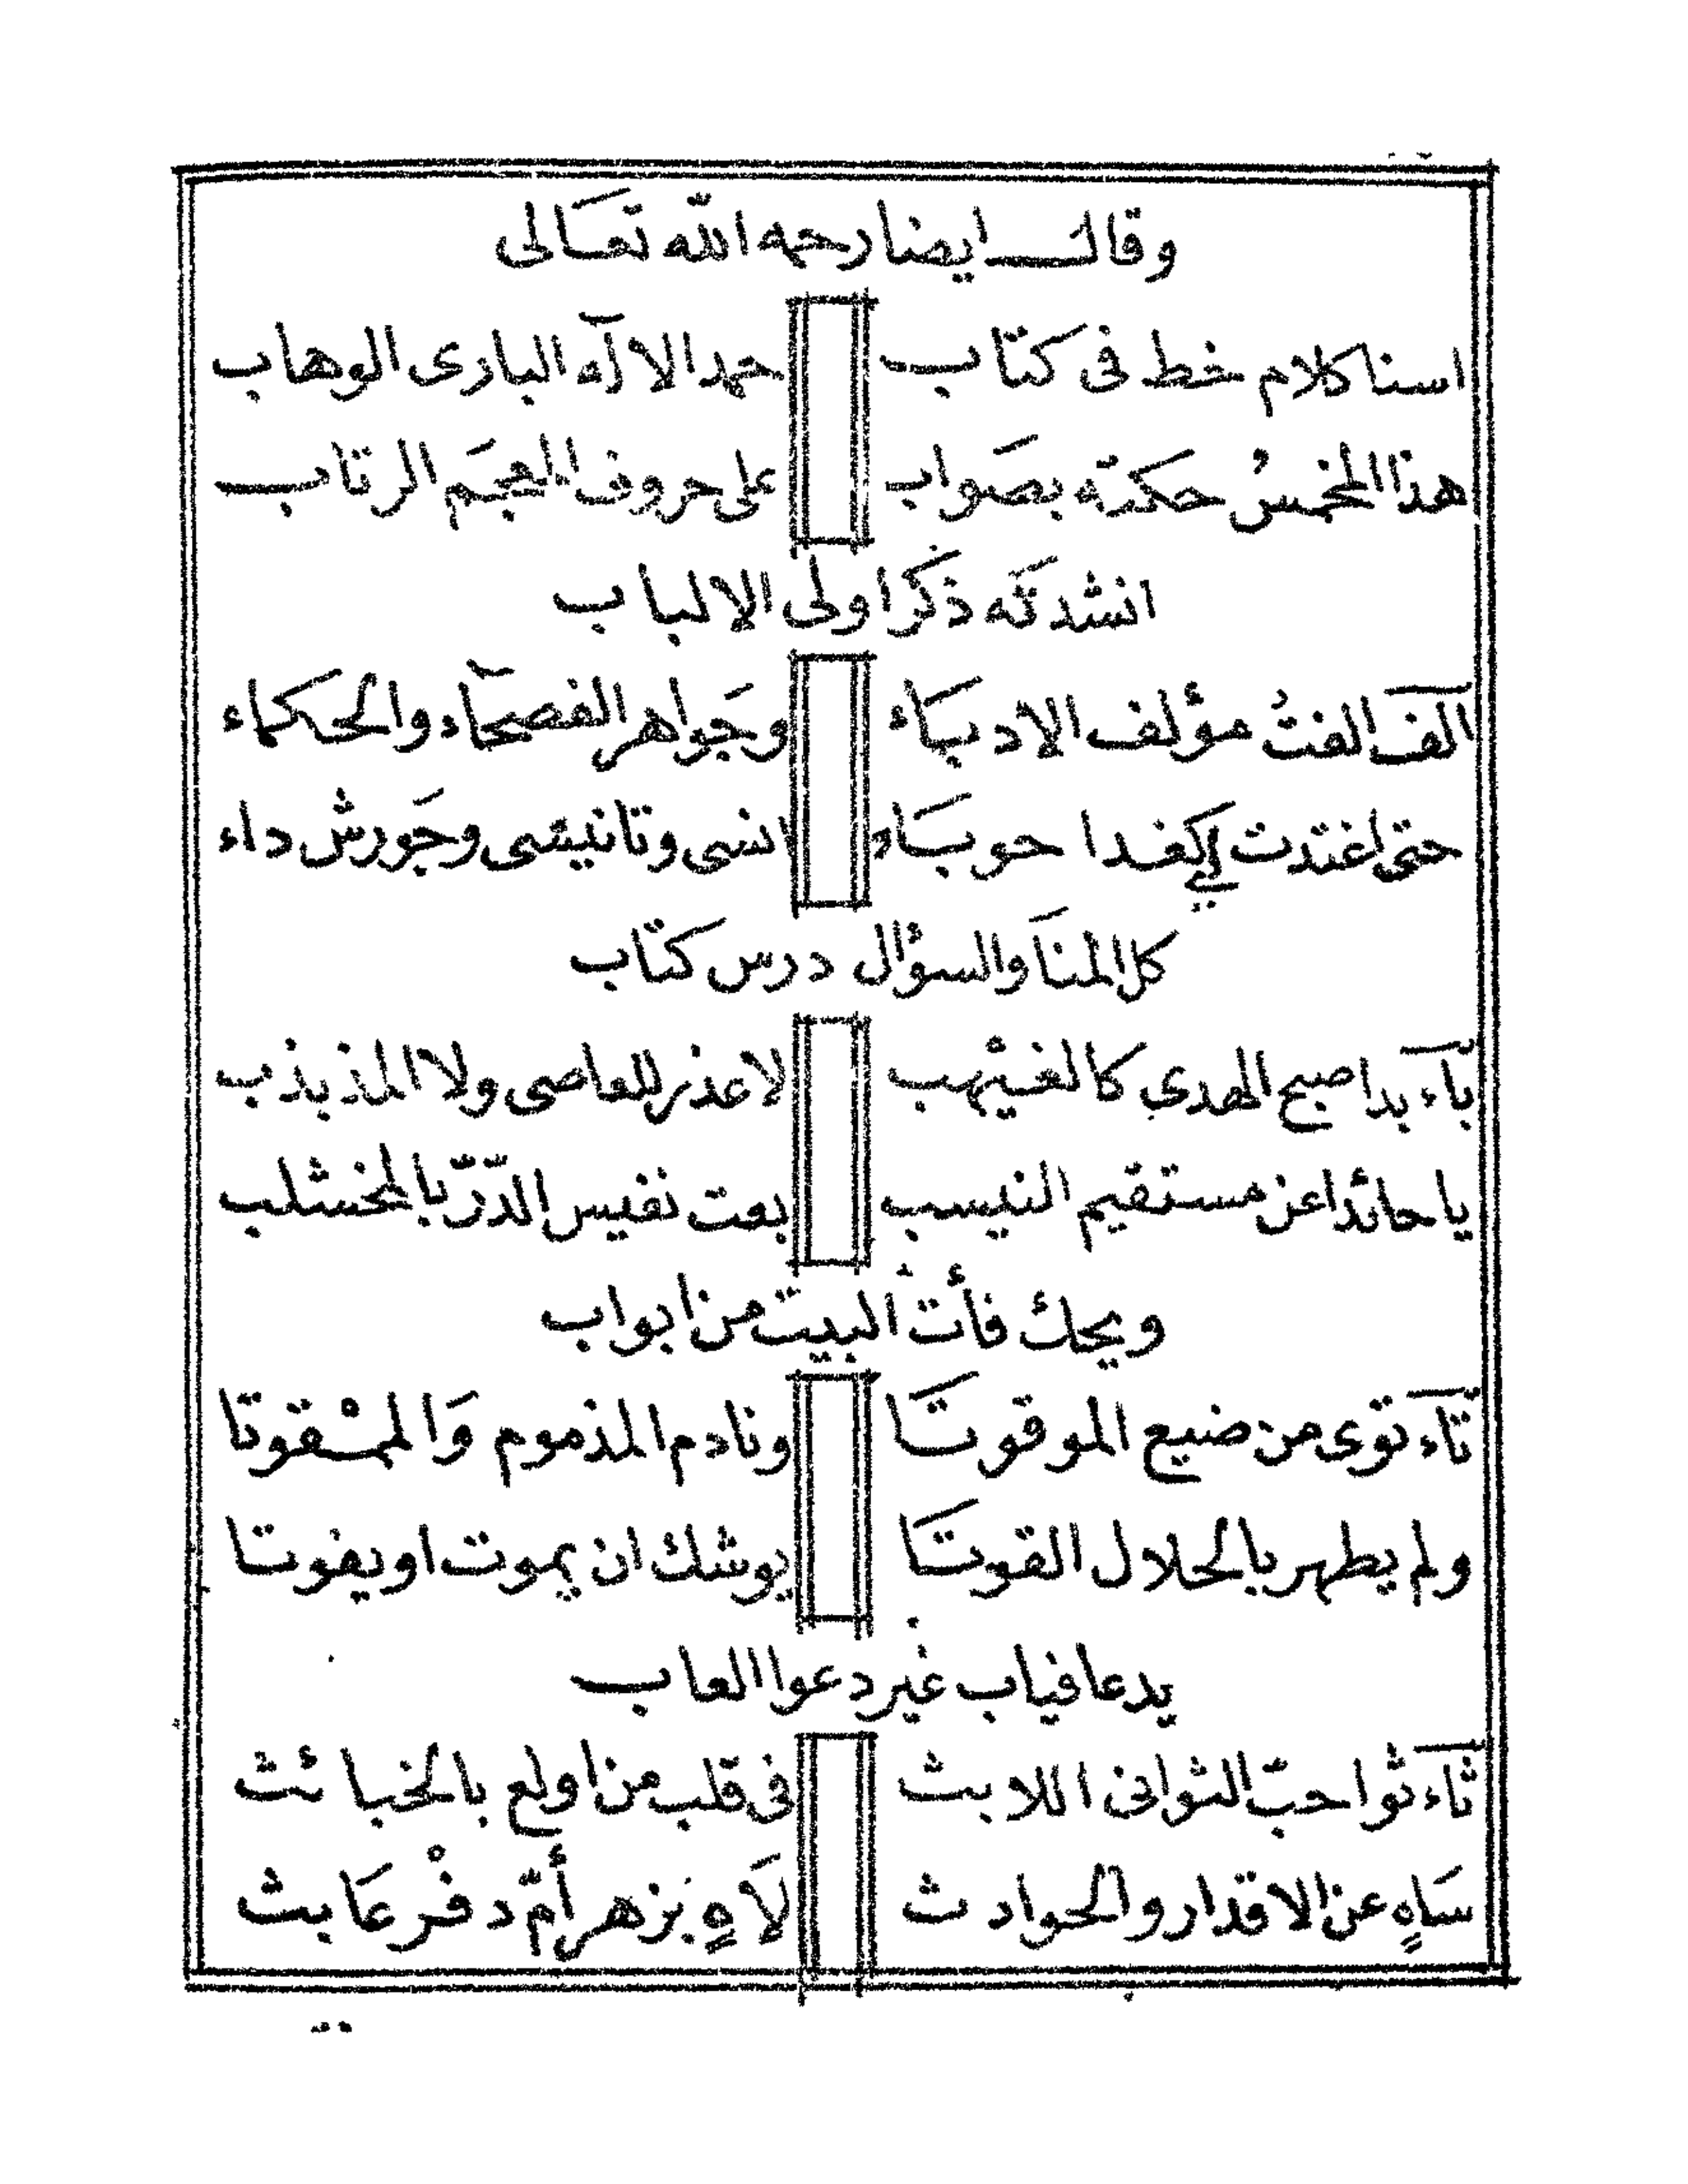 وقال ايضا رحمه الله تعَالى
اسنا كلام خط فى كتاب حمد الالٓه البارى الوهاب
هذا المخمسُ حكته بصَواب على حروف المعجَم الرتاب
انشدتَه ذكَرا ولى الالباب
الَف الفتُ مؤلف الادبَاء وجَواهر الفصحآء والحكماء
حتى اغتدت لى كغدا حوبَاء انسى وتانيسى وجَورش داء
كل المنَا والسؤال درس كتاب
بآء بدا صبح الهدى كالغيْهب لا عذر للعاصى ولا المذبذب
يا حائدا عن مستقيم النيسب بعت نفيس الدّرّ بالمخشلب
ويحك فأت البيت من ابواب
تآء توى من ضيع الموقوتَا ونادم المذموم وَالممْقوتا
ولم يطهر بالحلال القوتَا يوشك ان يموت او يفوتا
يدعا فياب غير دعوا العاب
ثآء ثوا حبّ الثوانى اللابث فى قلب من اولع بالخبائث
سَاهٍ عن الاقدار والحوادث لَاهٍ بزهر أمّ دفْر عَابث